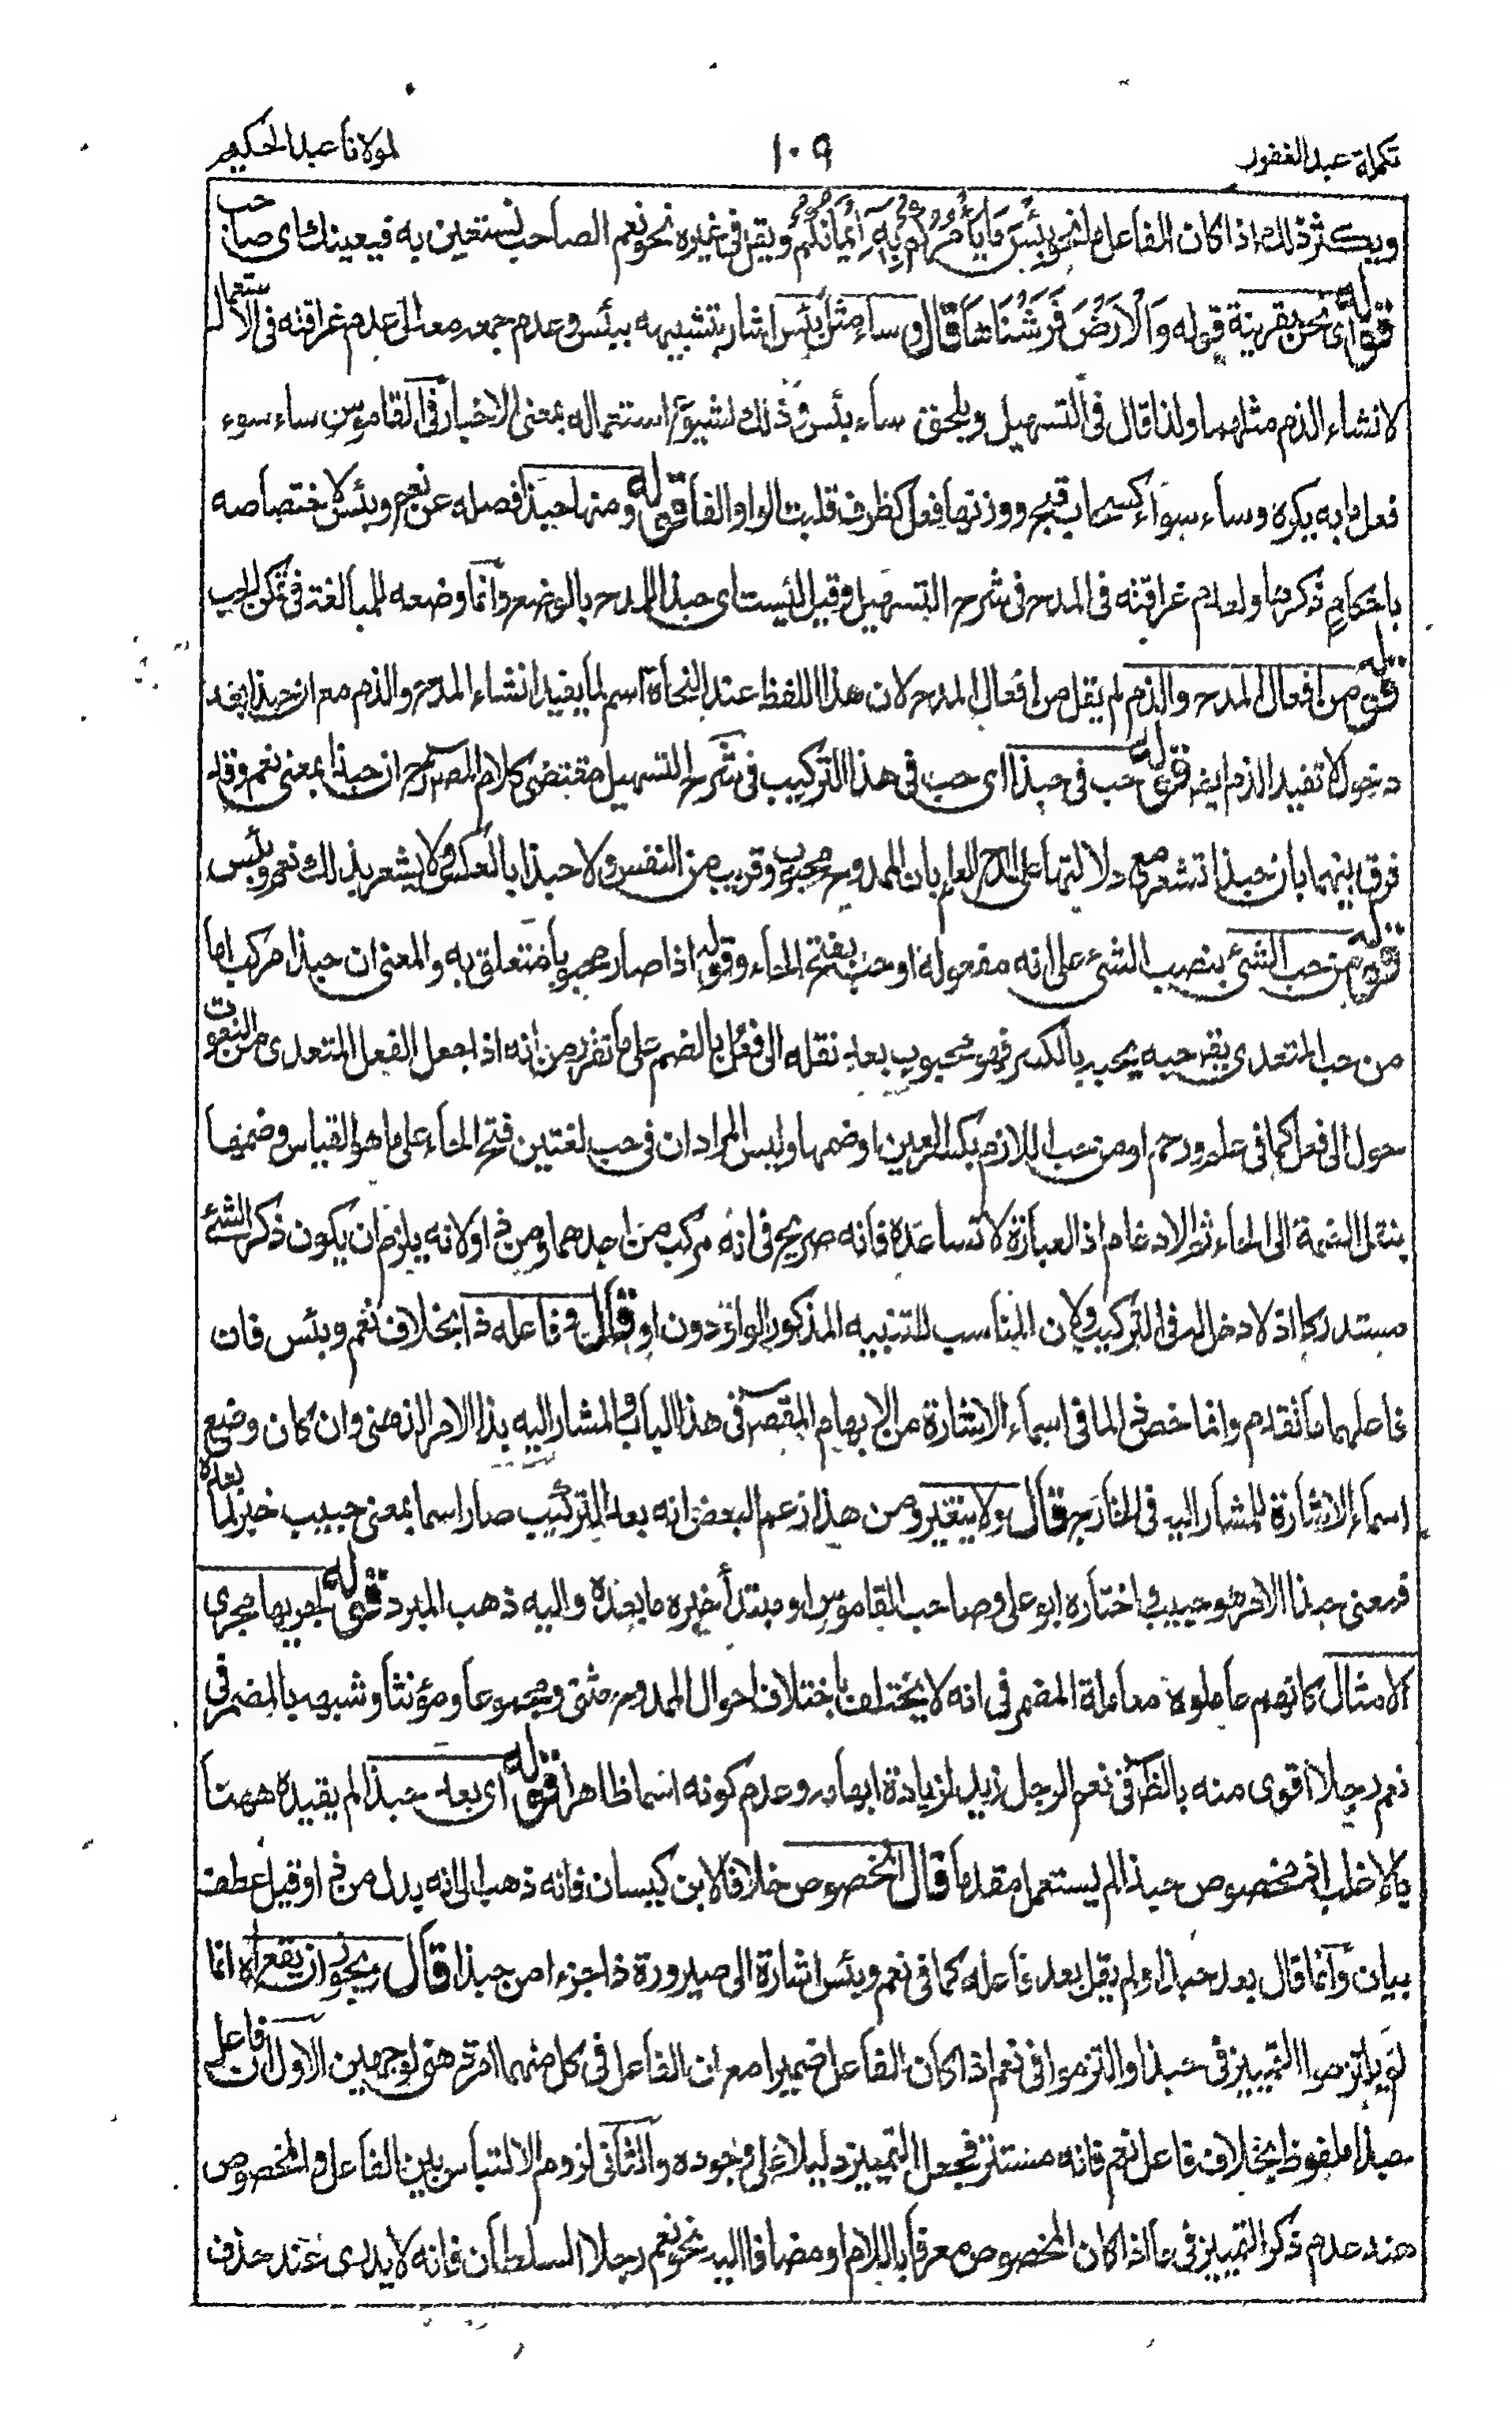 تكملة عبد الغفور
١٠٩
لمولانا عبد الحكيم
ويكثر ذلك اذا كان الفاعل ما نحو بِئْسَ مَا يَأْمُرُكُمْ بِهٖٓ اِيْمَانُكُمْ ويقل فى غيره نحو نعم الصاحب تستعين به فيعينك اى صاحب
قوله اى نحن بقرينة قوله وَالْاَرْضَ فَرَشْنَاهَا قال وساء مثل بئس اشار بتشبيهه ببئس وعدم جمعه معه الى عدم غراقته فى الاستعمال
لانشاء الذم مثلهما ولذا قال فى التسهيل ويلحق ساء ببئس وذلك لشيوع استعماله بمعنى الاخبار فى القاموس ساء سوء
فعل به ما يكره وساء سواء كسحاب قبح ووزنها فعل كظرف قلبت الواو الفا قوله ومنها حبذا فصله عن نعم وبئس لاختصاصه
باحكام ذكرها ولعدم غراقته فى المدح فى شرح التسهيل وقيل ليست اى حبذا للمدح بالوضع وانما وضعه للمبالغة فى تمكن الحب
قوله من افعال المدح والذم لم يقل من افعال المدح لان هذا اللفظ عند النحاة اسم لما يفيد انشاء المدح والذم مع ان حبذا بعد
دخول لا تفيد الذم ايضا قوله حب فى حبذا اى حب فى هذا التركيب فى شرح التسهيل مقتضى كلام المصـ رح ان حبذا بمعنى نعم وقد
فرق بينهما بان حبذا تشعر مع دلالتها على المدح العام بان الممدوح محبوب وقريب من النفس ولا حبذا بالعكس ولا يشعر بذلك نعم وبئس
قوله من حب الشئ بنصب الشئ على انه مفعوله او حب بفتح الحاء وقوله اذا صار محبوبا متعلق به والمعنى ان حبذا مركب اما
من حب المتعدى يقال حبه يحبه بالكسر فهو محبوب بعد نقله الى فعل بالضم على ما تقرر من انه اذا جعل الفعل المتعدى من النعوت
حول الى فعل كما فى علم ورحم او من حب اللازم بكسر العين او ضمها وليس المراد ان فى حب لغتين فتح الحاء على ما هو القياس وضمها
بنقل الضمة الى الحاء ثم الادغام اذ العبارة لا تساعده فانه صريح فى انه مركب من احدهما ومن ذا ولانه يلزم ان يكون ذكر الشئ
مستدركا اذ لا دخل له فى التركيب ولان المناسب للتنبيه المذكور الواو دون او قال وفاعله ذا بخلاف نعم وبئس فان
فاعلهما ما تقدم وانما خص ذا لما فى اسماء الاشارة من الابهام المقصود فى هذا الباب والمشار اليه بذا الامر الذهنى وان كان وضع
اسماء الاشارة للمشار اليه فى الخارج قال ولا يتغير ومن هذا زعم البعض انه بعد التركيب صار اسما بمعنى حبيب خبر لما بعده
فمعنى حبذا الامر هو حبيب واختاره ابو على وصاحب القاموس او مبتدأ خبره ما بعده واليه ذهب المبرد قوله لجريها مجرى
الامثال كانهم عاملوه معاملة المضمر فى انه لا يختلف باختلاف احوال الممدوح مثنى ومجموعا ومؤنثا وشبهه بالمضمر فى
نعم رجلا اقوى منه بالظاهر فى نعم الرجل زيد لزيادة ابهامه وعدم كونه اسما ظاهرا قوله اى بعد حبذا لم يقيده ههنا
بالاغلب لان مخصوص حبذا لم يستعمل مقدما قال المخصوص خلافا لابن كيسان فانه ذهب الى انه بدل من ذا وقيل عطف
بيان وانما قال بعد حبذا ولم يقل بعد فاعله كما فى نعم وبئس اشارة الى صيرورة ذا جزءا من حبذا قال ويجوز ان يقع اه انما
لم يلتزموا التمييز فى حبذا والتزموا فى نعم اذا كان الفاعل ضميرا مع ان الفاعل فى كل منهما امر ذهنى لوجهين الاول ان فاعل
حبذا ملفوظ بخلاف فاعل نعم فانه مستتر فجعل التمييز دليلا على وجوده والثانى لزوم الالتباس بين الفاعل والمخصوص
عند عدم ذكر التمييز فى ما اذا كان المخصوص معرفا باللام او مضافا اليه نحو نعم رجلا السلطان فانه لا يدرى عند حذف